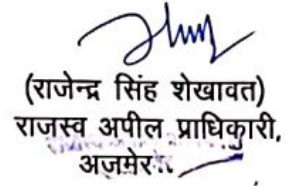 (राजेन्द्र सिंह शेखावत)
राजस्व अपील प्राधिकारी,
अजमेर..